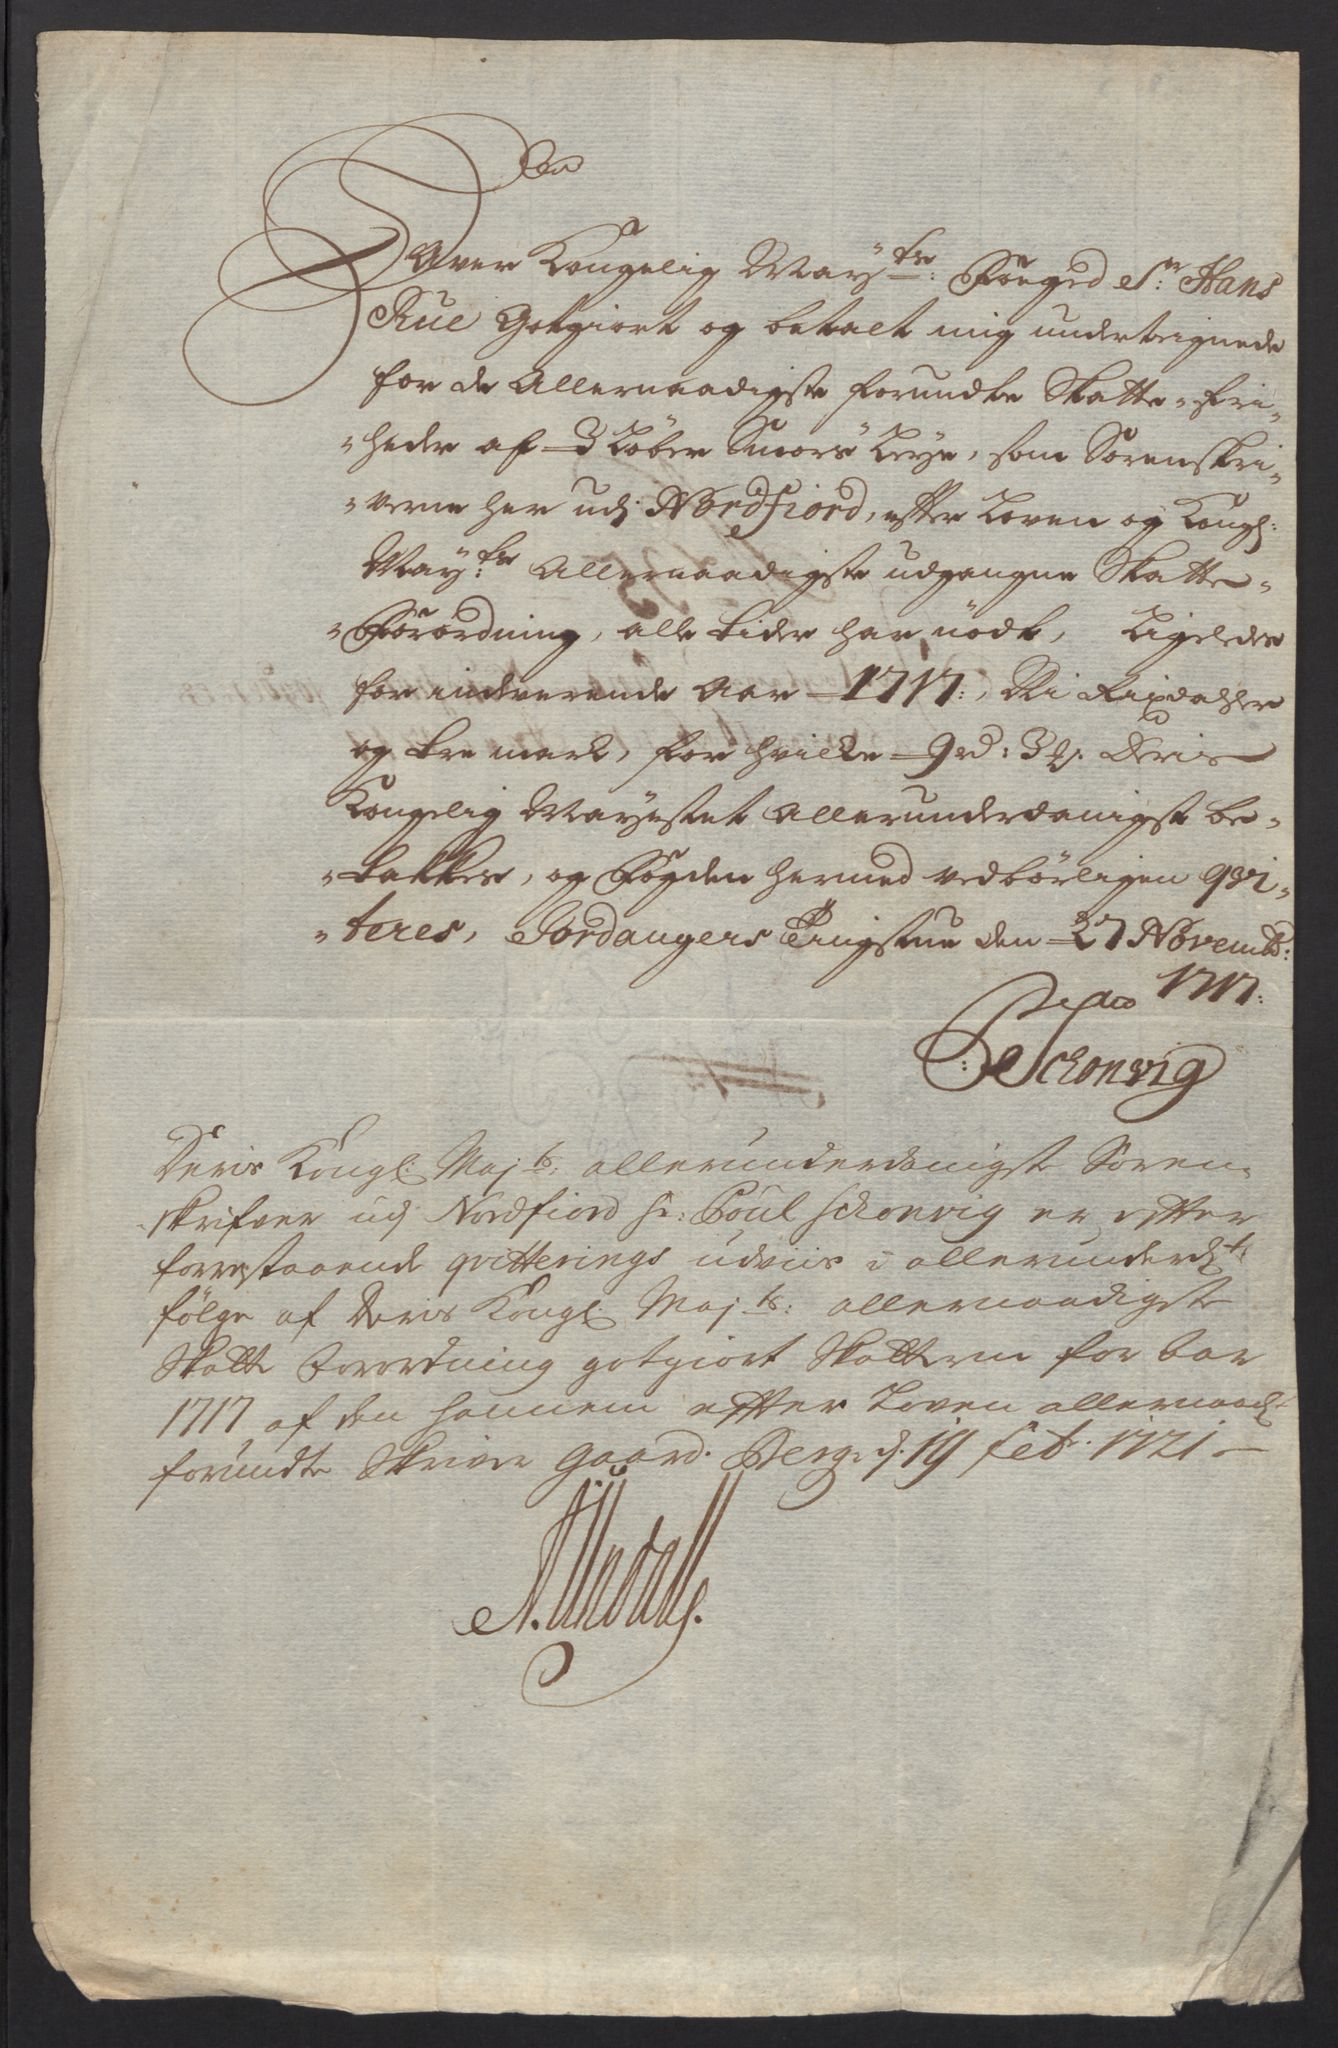 Haver Kongelig Mayts: Foeged Sr: Hans
Rue Gotgiort og betalt mig undterignede
for de Allernaadigste forundte Skatte-fri-
-heder af 3 Løber Smørs Leye, som Sorenskri-
-verne her udj Nordfiord, effter Loven og Kongl:
Mayts: Allernaadigste udgangne Skatte-
-Forordning, alle tider har nødt, Ligeledes
for indverende Aar 1717:, Ni Rixdahler
og tre mark, for hvilke 9 rd: 3 mk. Deris
Kongelig Mayestet Allerunderdanigst be-
-takkes, og Fogden hermed vedbørligen qvi-
-teres, Jordangers Tingstue den 27 Novemb:
1717:
Schonvig
Deris Kongl: Majts: allerunderdanigste Soren-
skrifver udj Nordfiord Sr: Poul Schonvig er effter
forrestaaende qvitterings udviis i allerunderdt
følge af Deris Kongl: Majts: allernaadigste
Skatte Forordning gotgiort Skatterne for Aar
1717 af den hannem effter Loven allernaad:
forundte Skriver Gaard. Berg. d. 19 Feb. 1721